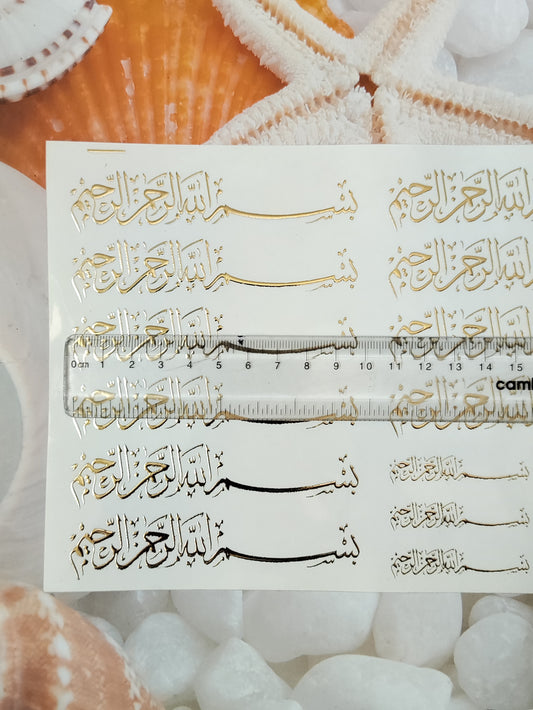 بسم الله الرحمن الرحيم بسم الله الرحمن الرحيم
بسم الله الرحمن الرحيم بسم الله الرحمن الرحيم
بسم الله الرحمن الرحيم بسم الله الرحمن الرحيم
0cm 1 2 3 4 5 6 7 8 9 10 11 12 13 14 15
cam
بسم الله الرحمن الرحيم بسم الله الرحمن الرحيم
بسم الله الرحمن الرحيم بسم الله الرحمن الرحيم
بسم الله الرحمن الرحيم بسم الله الرحمن الرحيم
بسم الله الرحمن الرحيم